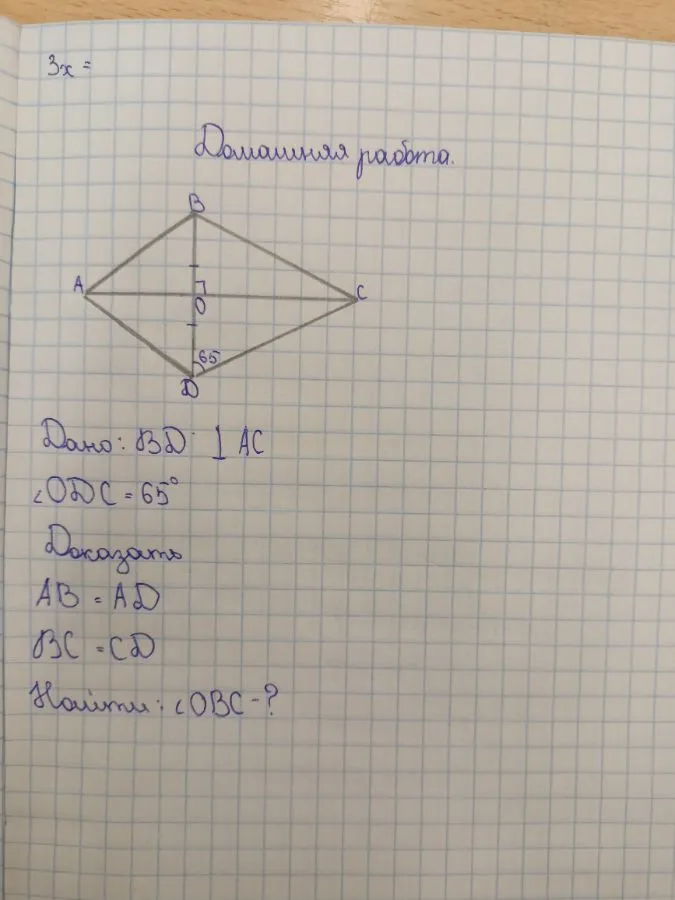 3x =
Домашняя работа.
B
A
O
C
65
D
Дано: BD ⊥ AC
∠ODC = 65°
Доказать
AB = AD
BC = CD
Найти: ∠OBC - ?